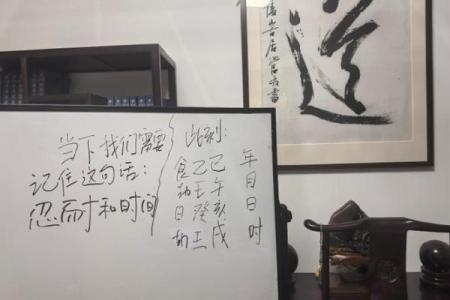 当下我们需要
记住这句话:
忍耐和时间
此刻:
食乙巳年
劫壬午月
日癸亥日
劫壬戌时
道